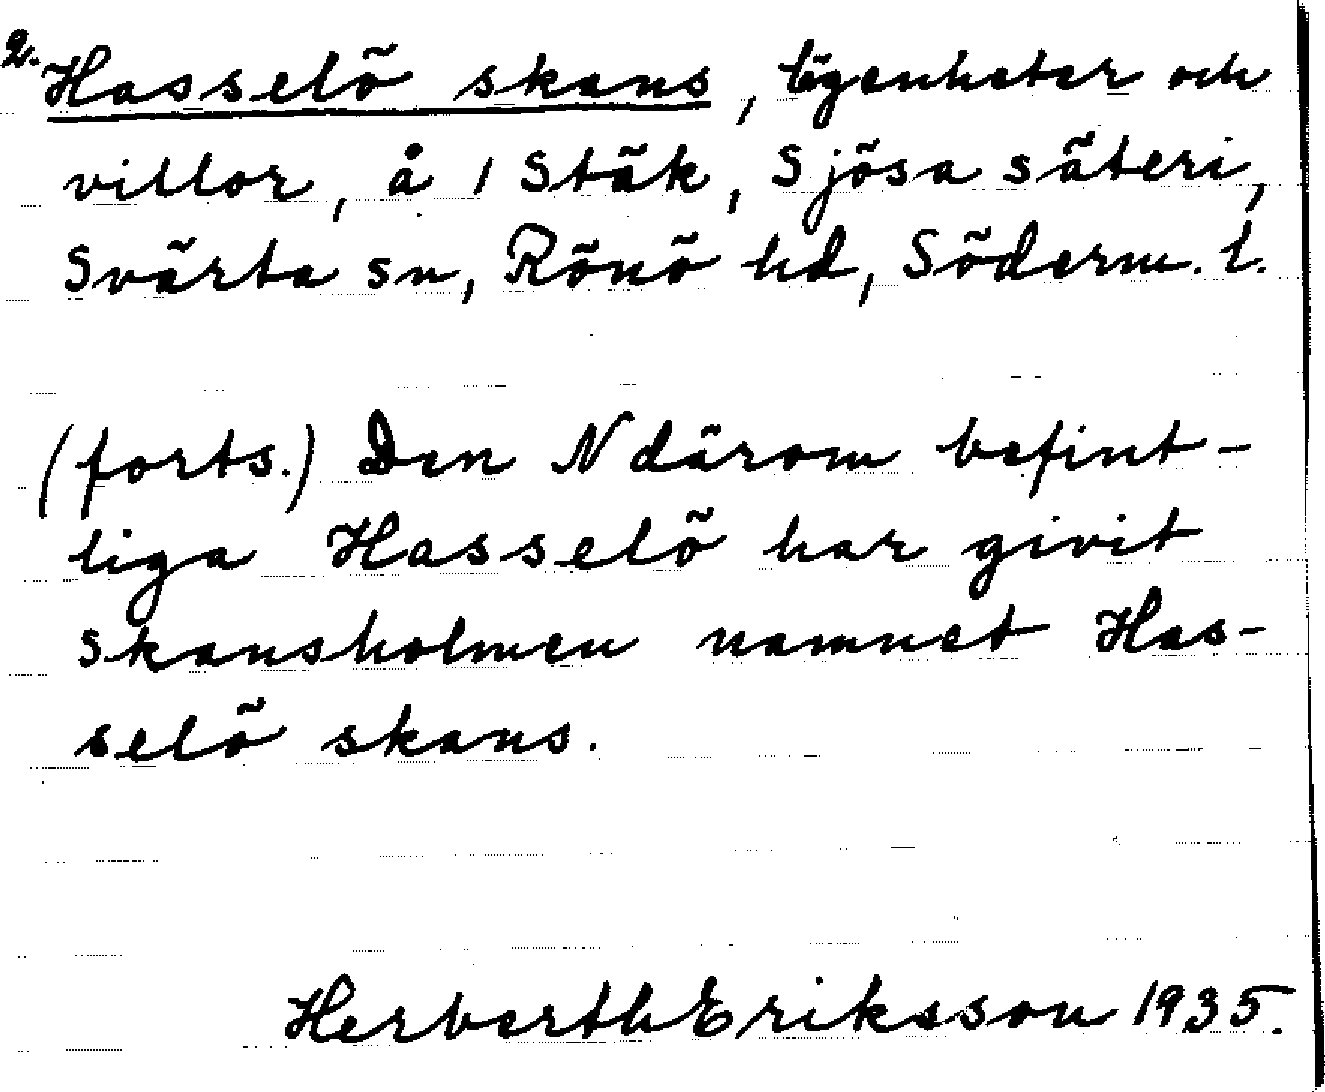 2. Hasselö skans, lägenheter och
villor, å 1 Stäk, Sjösa säteri,
Svärta sn, Rönö hd, Söderm. l.
(forts.) Den N därom befint-
liga Hasselö har givit
skansholmen namnet Has-
selö skans.
Herberth Eriksson 1935.